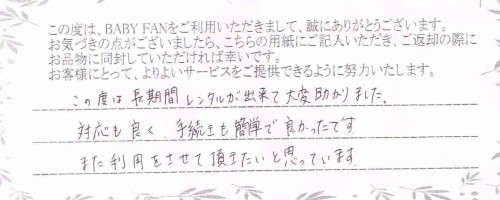 この度は、BABY FANをご利用いただきまして、誠にありがとうございます。
お気づきの点がございましたら、こちらの用紙にご記入いただき、ご返却の際に
お品物に同封していただければ幸いです。
お客様にとって、よりよいサービスをご提供できるように努力いたします。
この度は長期間レンタルが出来て大変助かりました。
対応も良く、手続きも簡単で良かったです
また利用をさせて頂きたいと思っています